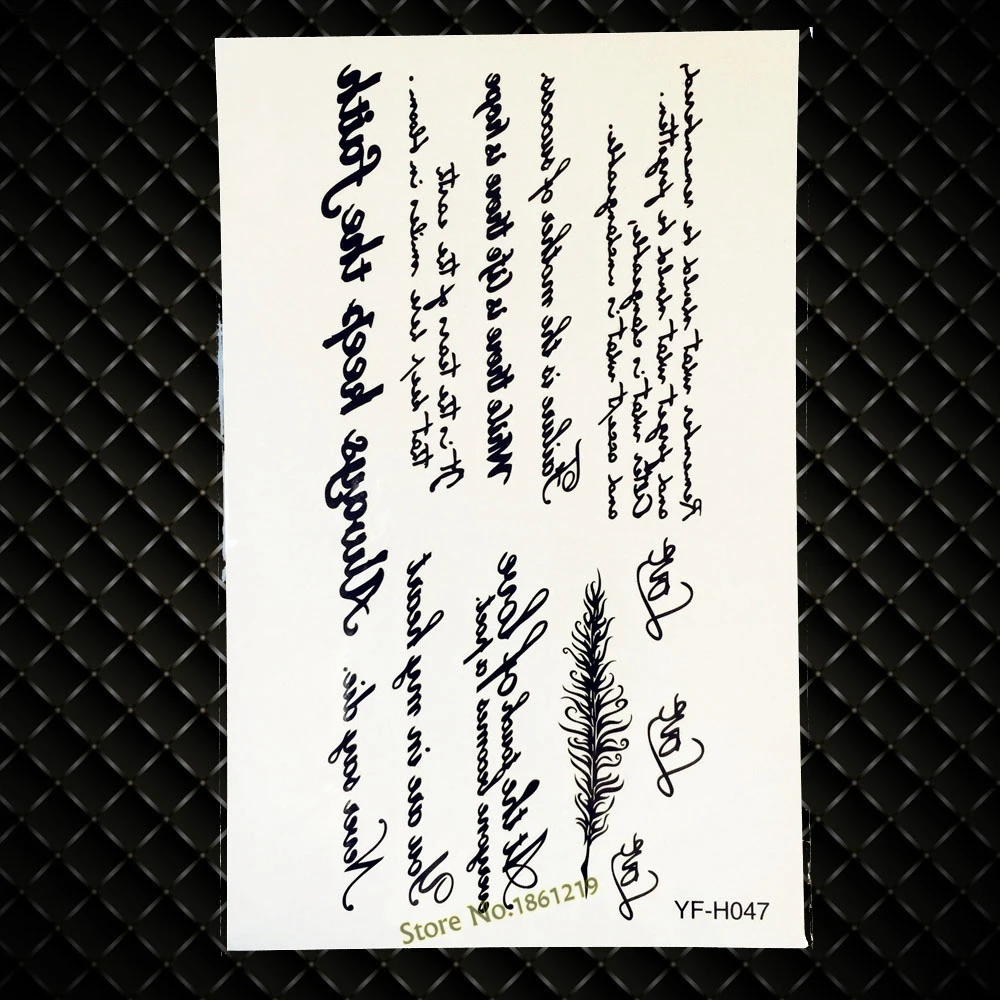 Remember what should be remembered
and forget what should be forgotten.
Alter what is changeable,
and accept what is unchangeable.
Failure is the mother of success
While there is life there is hope
It is the tears of the earth
that keep her smiles in bloom.
Always keep the Faith
Love
Love
Love
At the touch of love
everyone becomes a poet.
You are in my heart
Never say die.
Store No:1861219
YF-H047